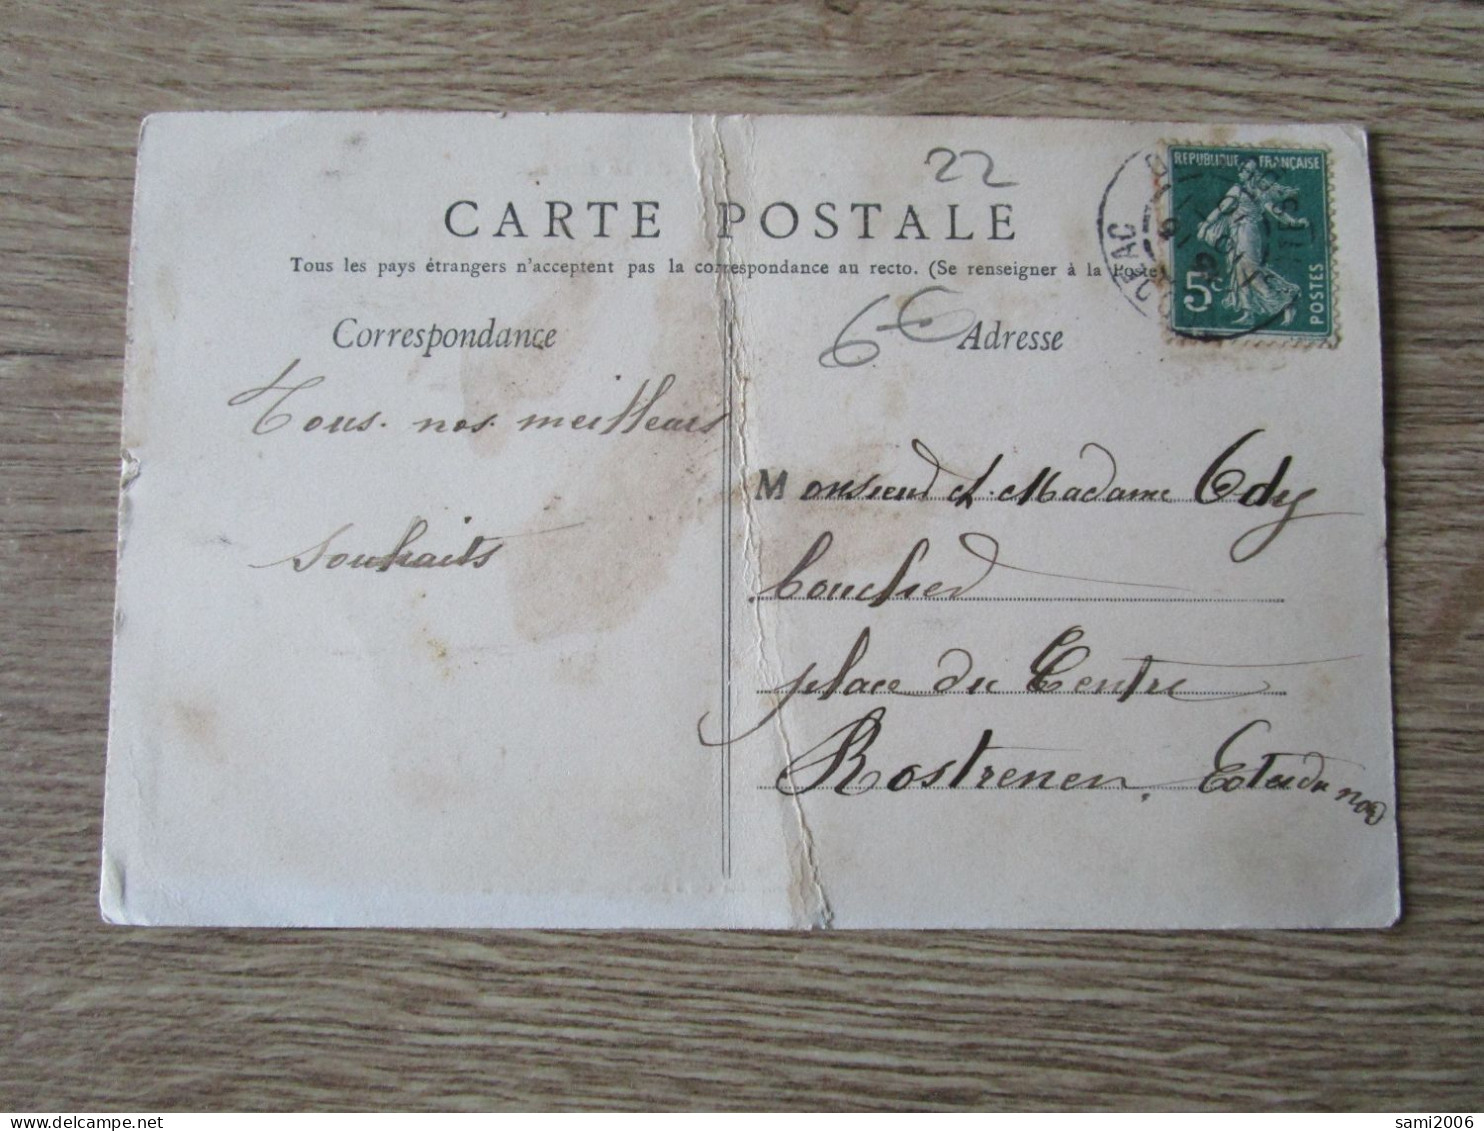 22
CARTE POSTALE
Tous les pays étrangers n'acceptent pas la correspondance au recto. (Se renseigner à la Poste
REPUBLIQUE FRANÇAISE
5c
POSTES
6-6
Correspondance
Adresse
Tous nos meilleurs
souhaits
Monsieur et Madame Ody
boucher
place du Centre
Rostrenen. Cotes du nord
sami2006